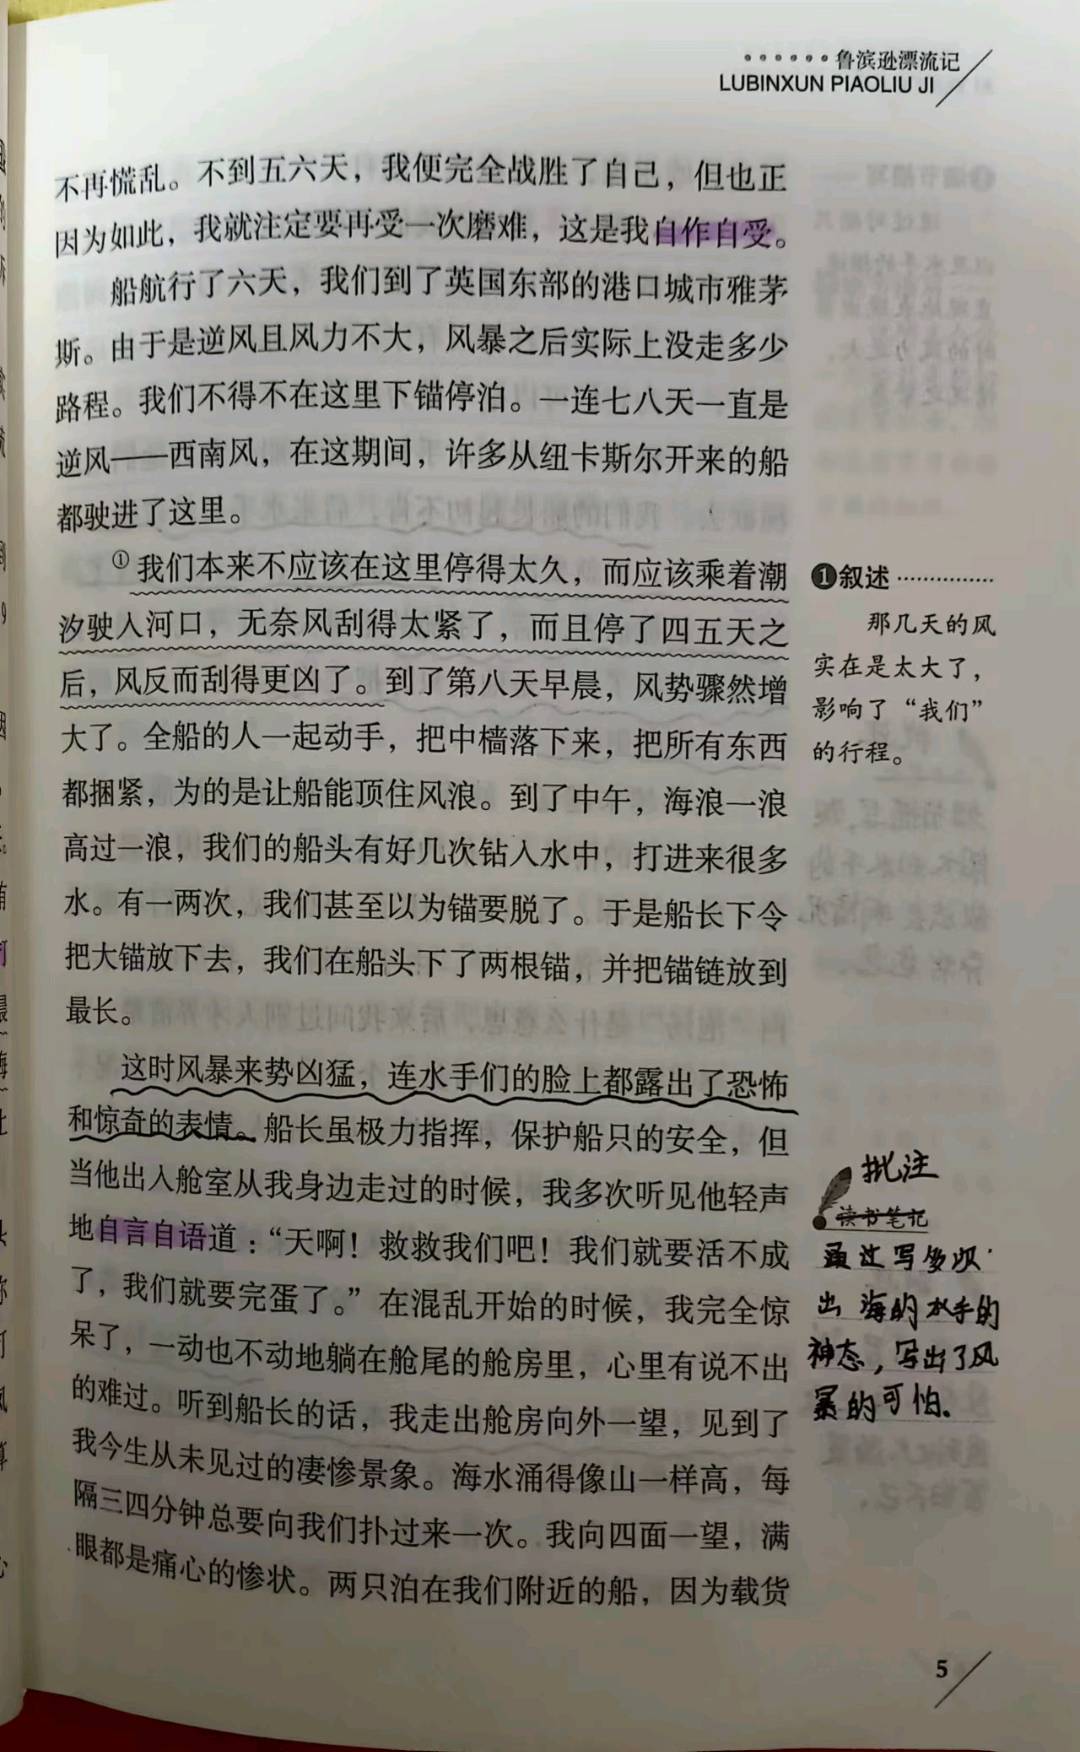 鲁滨逊漂流记
LUBINXUN PIAOLIU JI
不再慌乱。不到五六天，我便完全战胜了自己，但也正
因为如此，我就注定要再受一次磨难，这是我自作自受。
船航行了六天，我们到了英国东部的港口城市雅茅
斯。由于是逆风且风力不大，风暴之后实际上没走多少
路程。我们不得不在这里下锚停泊。一连七八天一直是
逆风——西南风，在这期间，许多从纽卡斯尔开来的船
都驶进了这里。
①我们本来不应该在这里停得太久，而应该乘着潮
汐驶入河口，无奈风刮得太紧了，而且停了四五天之
后，风反而刮得更凶了。到了第八天早晨，风势骤然增
大了。全船的人一起动手，把中樯落下来，把所有东西
都捆紧，为的是让船能顶住风浪。到了中午，海浪一浪
高过一浪，我们的船头有好几次钻入水中，打进来很多
水。有一两次，我们甚至以为锚要脱了。于是船长下令
把大锚放下去，我们在船头下了两根锚，并把锚链放到
最长。
这时风暴来势凶猛，连水手们的脸上都露出了恐怖
和惊奇的表情。船长虽极力指挥，保护船只的安全，但
当他出入舱室从我身边走过的时候，我多次听见他轻声
地自言自语道：“天啊！救救我们吧！我们就要活不成
了，我们就要完蛋了。”在混乱开始的时候，我完全惊
呆了，一动也不动地躺在舱尾的舱房里，心里有说不出
的难过。听到船长的话，我走出舱房向外一望，见到了
我今生从未见过的凄惨景象。海水涌得像山一样高，每
隔三四分钟总要向我们扑过来一次。我向四面一望，满
眼都是痛心的惨状。两只泊在我们附近的船，因为载货
❶叙述
那几天的风
实在是太大了，
影响了“我们”
的行程。
批注
读书笔记
通过写多次
出海的水手的
神态，写出了风
暴的可怕.
5